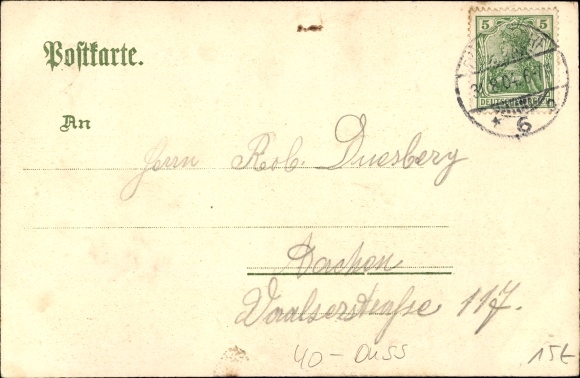 Postkarte.
5 5
DEUTSCHES REICH
6
An
Herrn Rob. Duesberg
Aachen
Vaalserstraße 117.
40-0455
15€